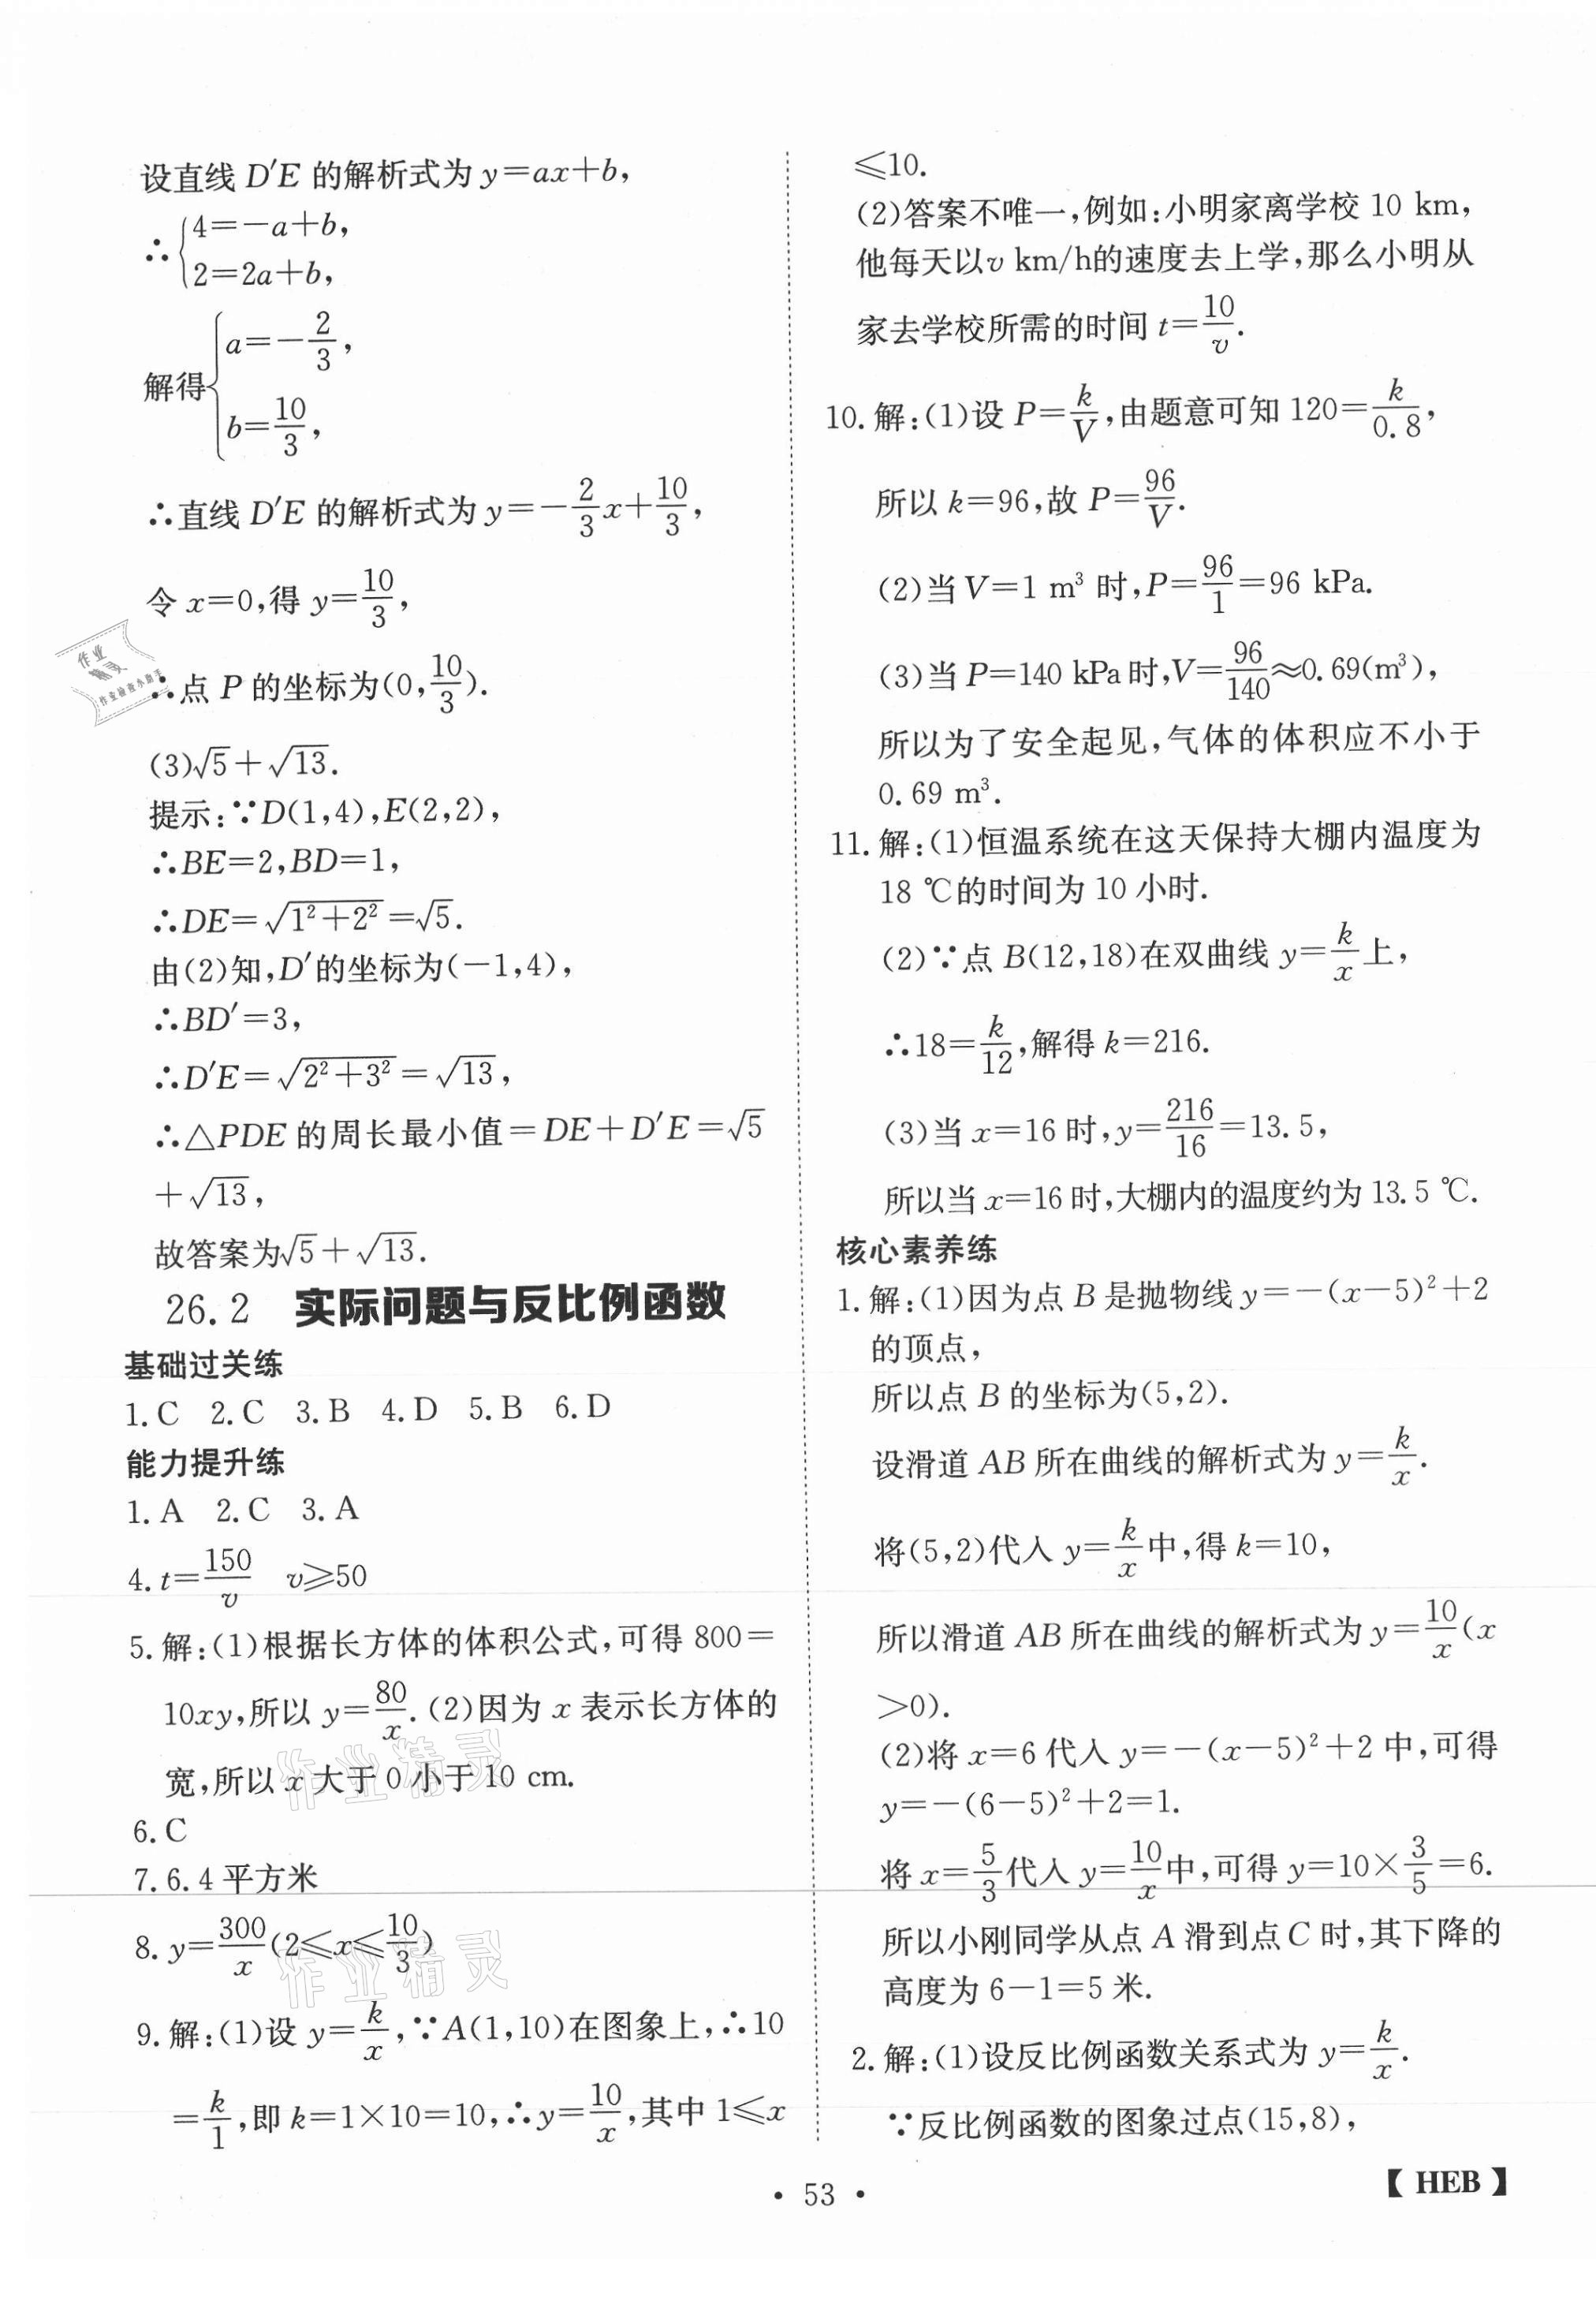 设直线 D′E 的解析式为 y=ax+b,
∴{4=-a+b,
2=2a+b,
解得{a=-2/3,
b=10/3,
∴直线 D′E 的解析式为 y=-2/3x+10/3,
令 x=0,得 y=10/3,
∴点 P 的坐标为(0,10/3).
(3)√5+√13.
提示:∵D(1,4),E(2,2),
∴BE=2,BD=1,
∴DE=√(1²+2²)=√5.
由(2)知,D′的坐标为(-1,4),
∴BD′=3,
∴D′E=√(2²+3²)=√13,
∴△PDE 的周长最小值=DE+D′E=√5
+√13,
故答案为√5+√13.
26.2 实际问题与反比例函数
基础过关练
1.C 2.C 3.B 4.D 5.B 6.D
能力提升练
1.A 2.C 3.A
4.t=150/v v≥50
5.解:(1)根据长方体的体积公式,可得 800=
10xy,所以 y=80/x.(2)因为 x 表示长方体的
宽,所以 x 大于 0 小于 10 cm.
6.C
7.6.4 平方米
8.y=300/x(2≤x≤10/3)
9.解:(1)设 y=k/x,∵A(1,10)在图象上,∴10
=k/1,即 k=1×10=10,∴y=10/x,其中 1≤x
≤10.
(2)答案不唯一,例如:小明家离学校 10 km,
他每天以v km/h的速度去上学,那么小明从
家去学校所需的时间 t=10/v.
10.解:(1)设 P=k/V,由题意可知 120=k/0.8,
所以 k=96,故 P=96/V.
(2)当 V=1 m³ 时,P=96/1=96 kPa.
(3)当 P=140 kPa 时,V=96/140≈0.69(m³),
所以为了安全起见,气体的体积应不小于
0.69 m³.
11.解:(1)恒温系统在这天保持大棚内温度为
18 ℃的时间为 10 小时.
(2)∵点 B(12,18)在双曲线 y=k/x上,
∴18=k/12,解得 k=216.
(3)当 x=16 时,y=216/16=13.5,
所以当 x=16 时,大棚内的温度约为 13.5 ℃.
核心素养练
1.解:(1)因为点 B 是抛物线 y=-(x-5)²+2
的顶点,
所以点 B 的坐标为(5,2).
设滑道 AB 所在曲线的解析式为 y=k/x.
将(5,2)代入 y=k/x中,得 k=10,
所以滑道 AB 所在曲线的解析式为 y=10/x(x
>0).
(2)将 x=6 代入 y=-(x-5)²+2 中,可得
y=-(6-5)²+2=1.
将 x=5/3代入 y=10/x中,可得 y=10×3/5=6.
所以小刚同学从点 A 滑到点 C 时,其下降的
高度为 6-1=5 米.
2.解:(1)设反比例函数关系式为 y=k/x.
∵反比例函数的图象过点(15,8),
• 53 •
【 HEB 】
作业
作业检查小助手
作业精灵
作业精灵